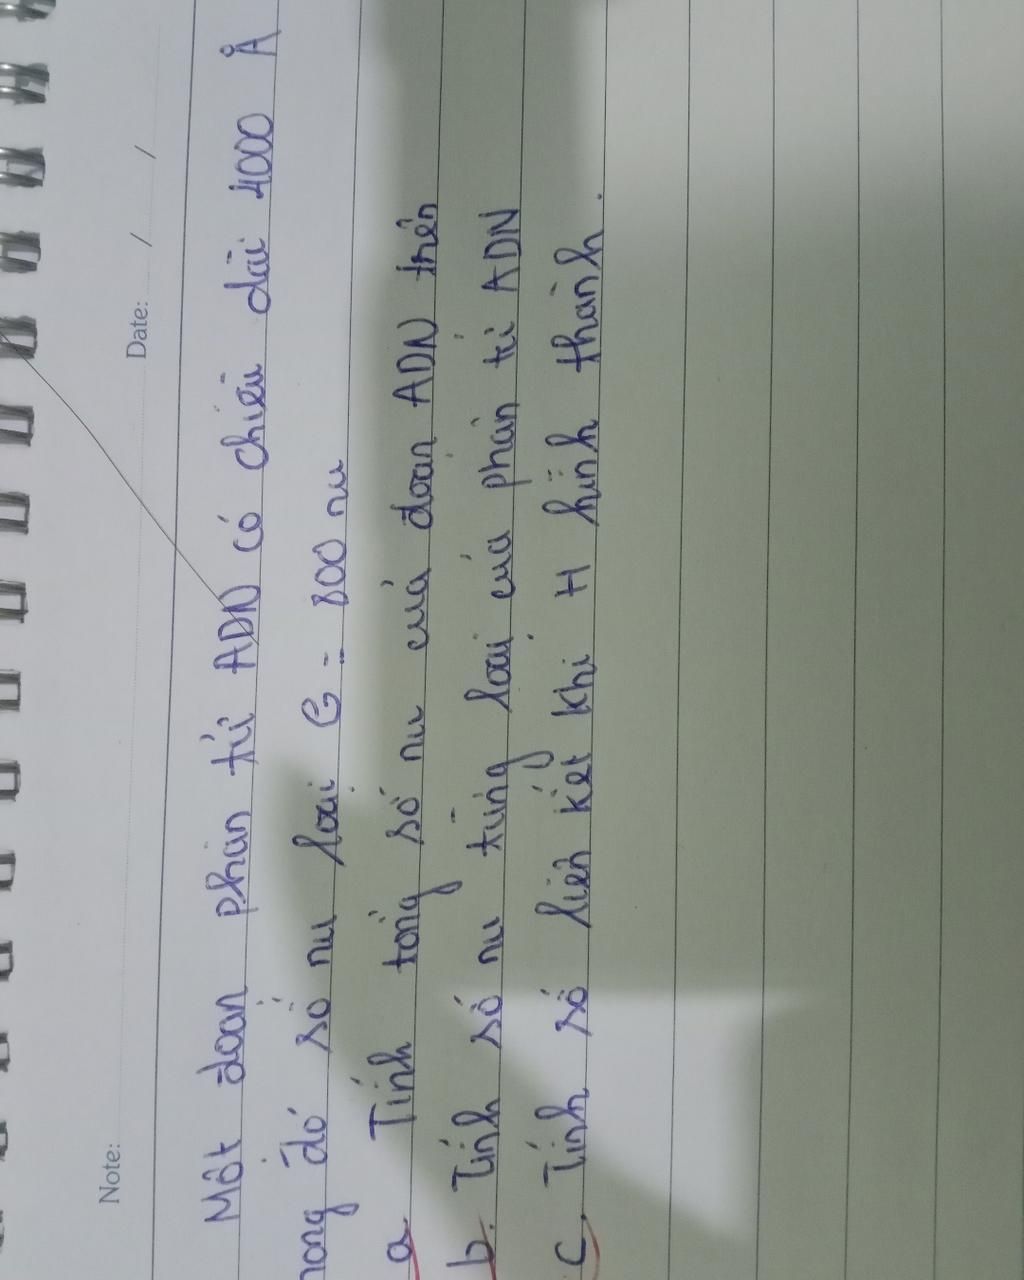 Note:
Date: / /
Một đoạn phân tử ADN có chiều dài 4000 Å
rong đó số nu loại G = 800 nu
a Tính tổng số nu của đoạn ADN trên
b. Tính số nu từng loại của phân tử ADN
c. Tính số liên kết khi H hình thành.